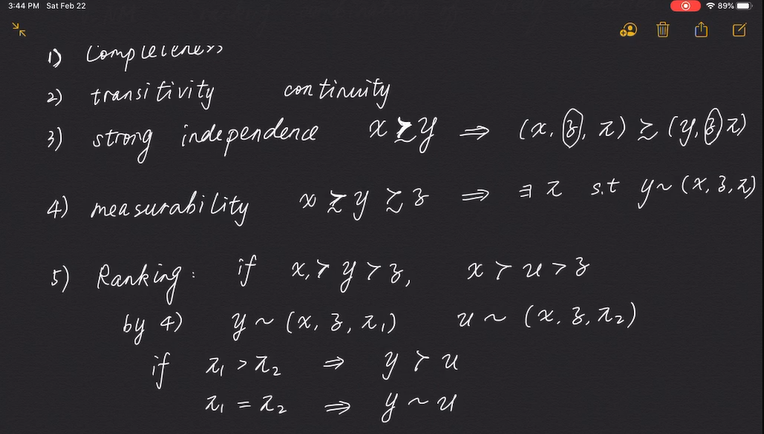 3:44 PM Sat Feb 22 89%
1) Completeness
2) transitivity continuity
3) strong independence x ≿ y ⇒ (x, z, π) ≿ (y, z, π)
4) measurability x ≿ y ≿ z ⇒ ∃ π s.t y ~ (x, z, π)
5) Ranking: if x, ≻ y ≻ z, x ≻ u ≻ z
by 4) y ~ (x, z, π₁) u ~ (x, z, π₂)
if π₁ > π₂ ⇒ y ≻ u
π₁ = π₂ ⇒ y ~ u